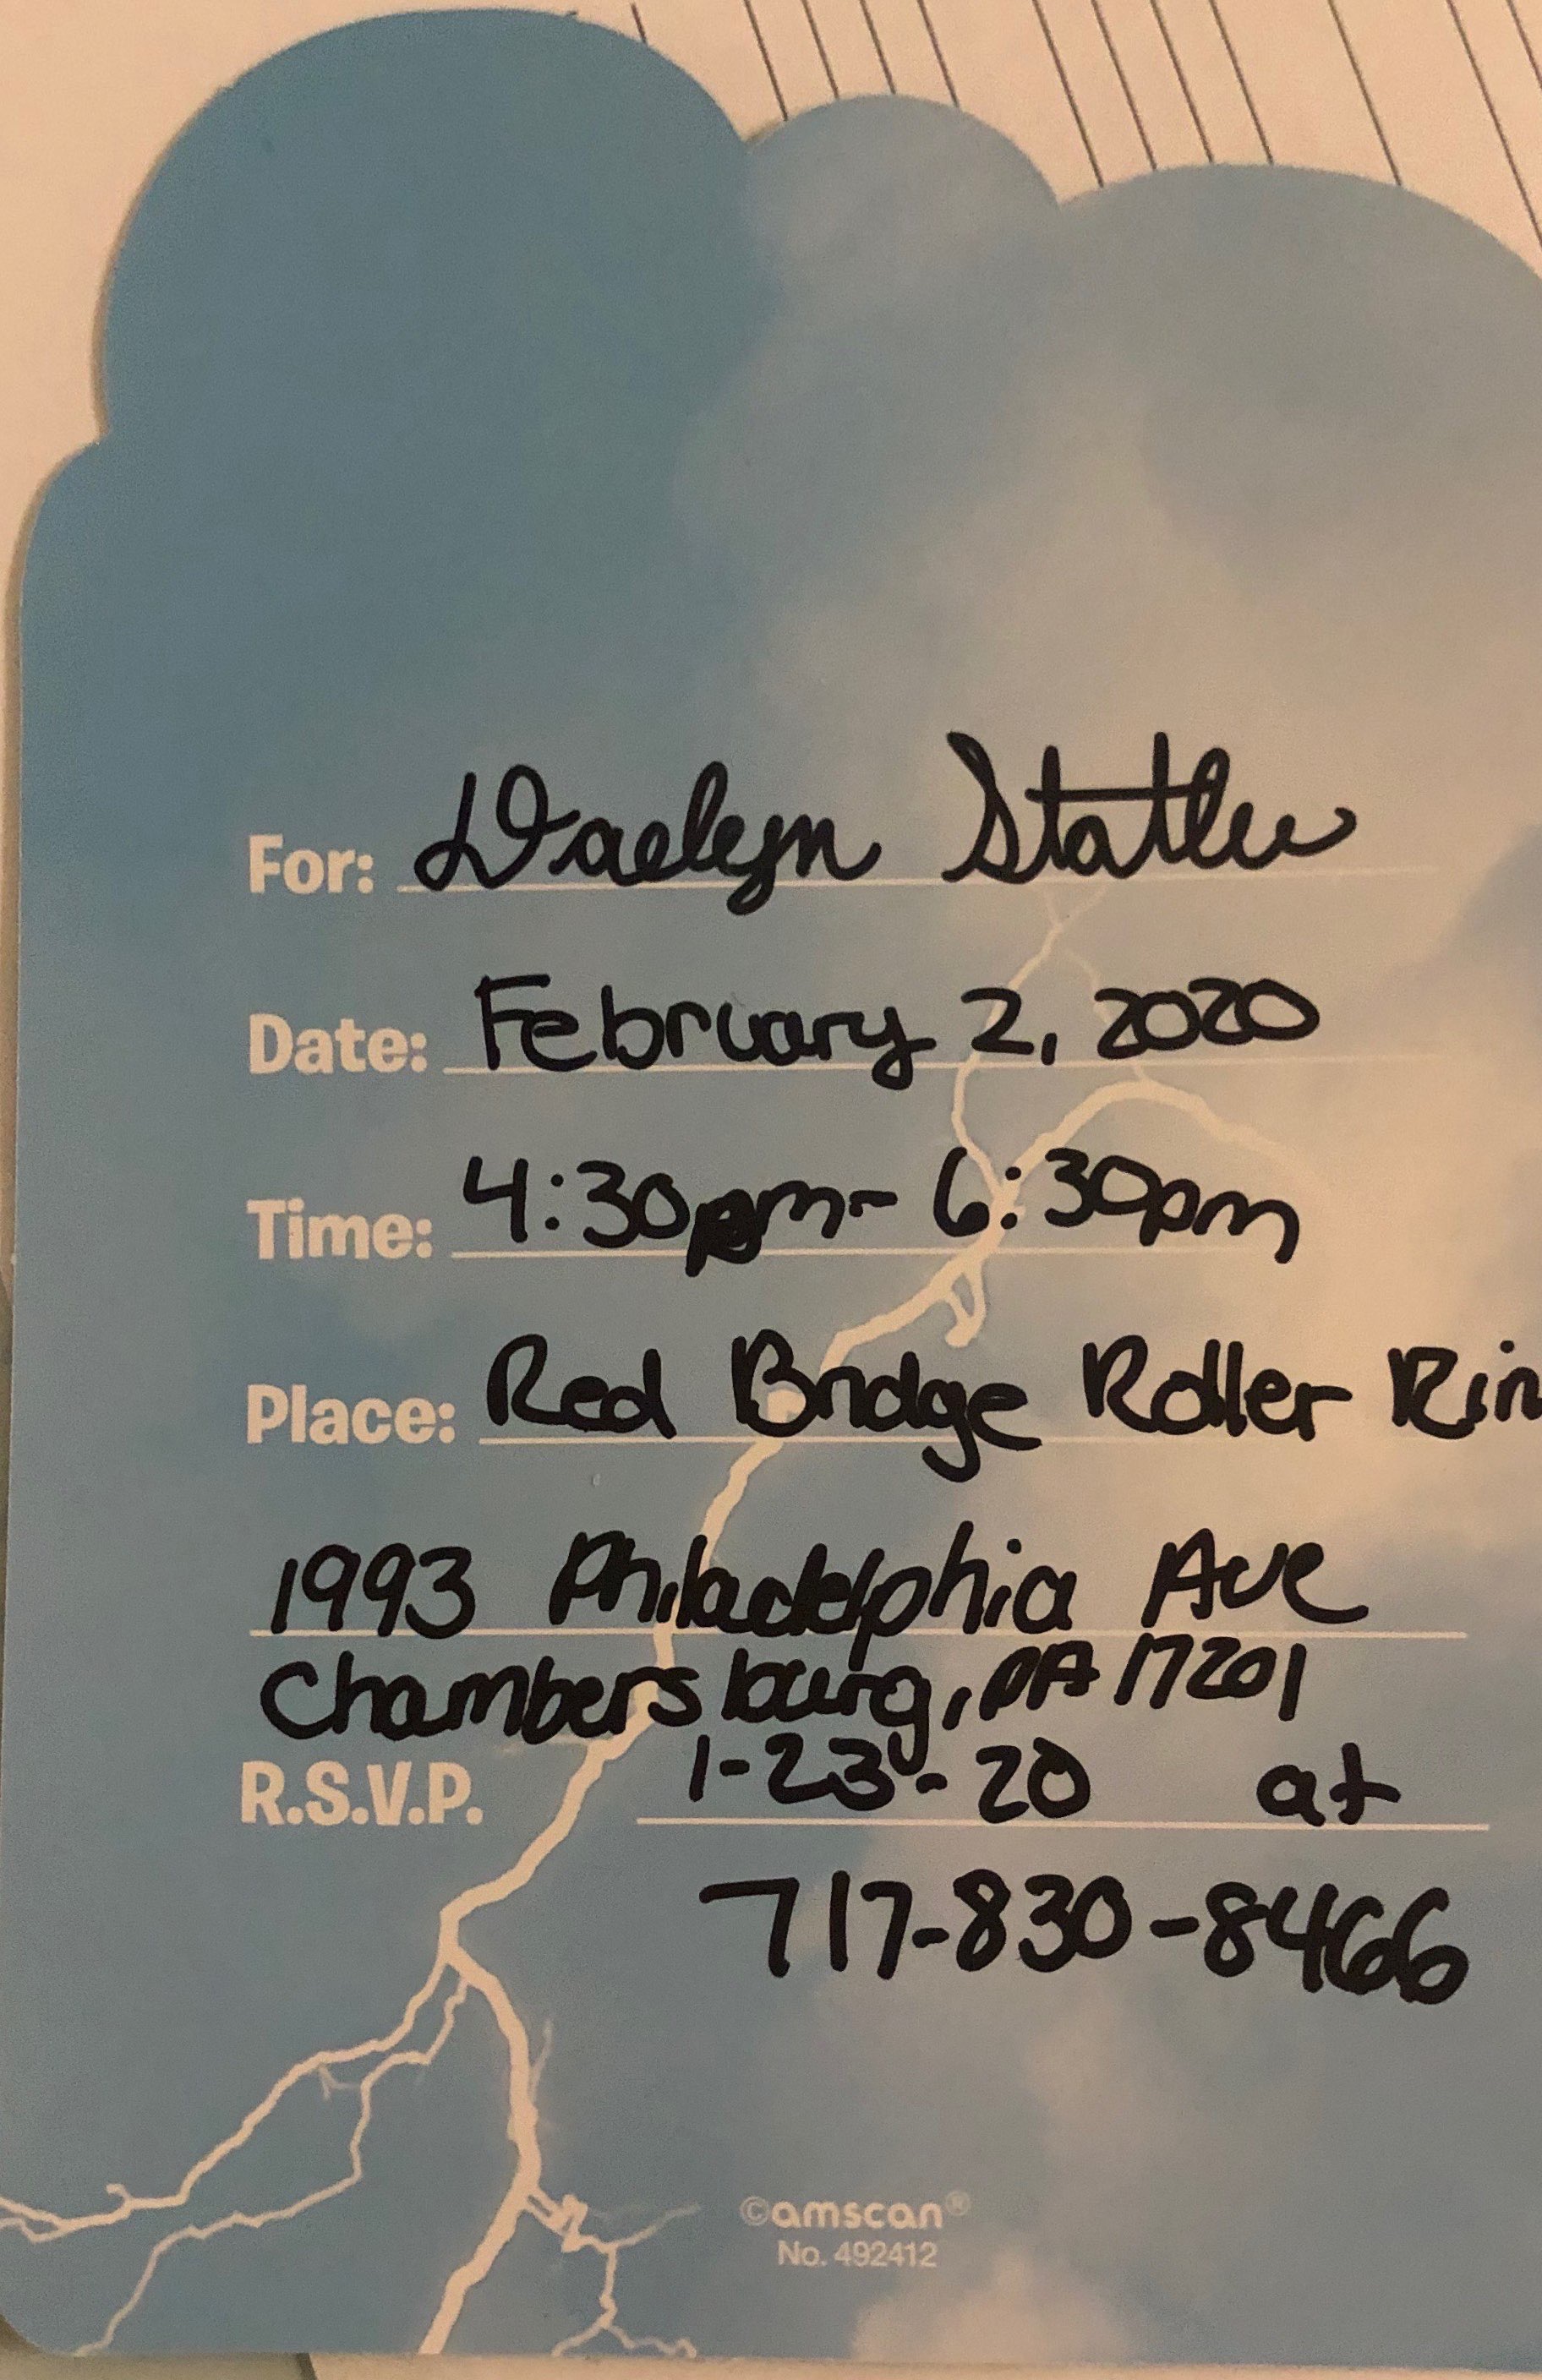 For: Daelyn Statler
Date: February 2, 2020
Time: 4:30pm - 6:30pm
Place: Red Bridge Roller Rin
1993 Philadelphia Ave
Chambersburg, PA 17201
R.S.V.P. 1-23-20 at
717-830-8466
©amscan®
No. 492412